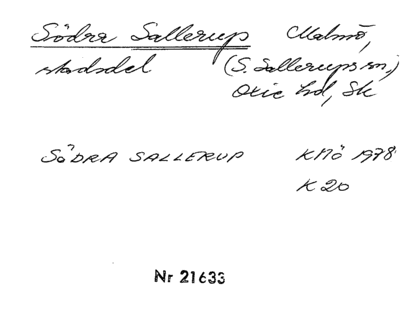 Södra Sallerup Malmö,
stadsdel (S. Sallerups sn.)
Oxie hd, Sk
SÖDRA SALLERUP KMÖ 1978
K 20
Nr 21633